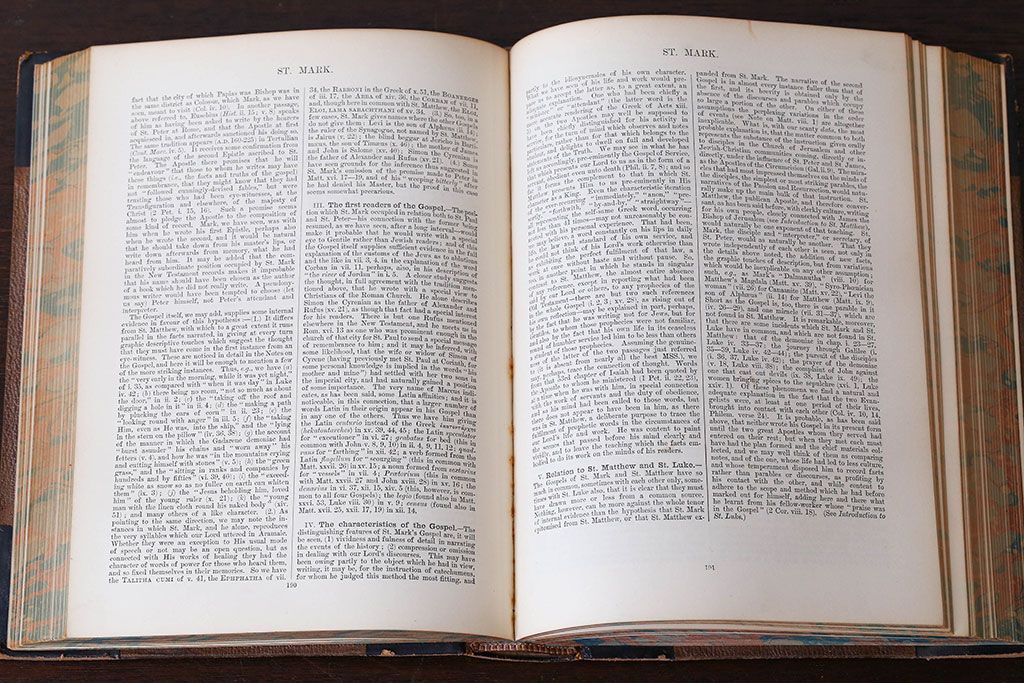 ST. MARK.
fact that the city of which Papias was Bishop was in
the same district as Colossæ, which Mark, as we have
seen, meant to visit (Col. iv. 10). In another passage,
above referred to, Eusebius (Hist. ii. 15; v. 8) speaks
of him as having been asked by the hearers
of St. Peter at Rome, and that the Apostle at first
acquiesced in, and afterwards sanctioned his doing so.
The same tradition appears (A.D. 160-225) in Tertullian
(Cont. Marc. iv. 5). It receives some confirmation from
the language of the second Epistle ascribed to St.
Peter. The Apostle there promises that he will
"endeavour" that those to whom he writes may have
these things (i.e., the facts and truths of the gospel)
in remembrance, that they might know that they had
not "followed cunningly-devised fables," but were
trusting those who had been eye-witnesses, at the
Transfiguration and elsewhere, of the majesty of
Christ (2 Pet. i. 15, 16). Such a promise seems
almost to pledge the Apostle to the composition of
some kind of record. Mark, we have seen, was with
him when he wrote his first Epistle, perhaps also
when he wrote the second, and it would be natural
that he should take down from his master's lips, or
write down afterwards from memory, what he had
heard from him. It may be added that the com-
paratively subordinate position occupied by St. Mark
in the New Testament records makes it improbable
that his name should have been chosen as the author
of a book which he did not really write. A pseudony-
mous writer would have been tempted to choose (let
us say) Peter himself, not Peter's attendant and
interpreter.
The Gospel itself, we may add, supplies some internal
evidence in favour of this hypothesis:—(1.) It differs
from St. Matthew, with which to a great extent it runs
parallel in the facts narrated, in giving at every turn
graphic descriptive touches which suggest the thought
that they must have come in the first instance from an
eye-witness. These are noticed in detail in the Notes on
the Gospel, and here it will be enough to mention a few
of the more striking instances. Thus, e.g., we have (a)
the "very early in the morning, while it was yet night,"
of i. 35, as compared with "when it was day" in Luke
iv. 42; (b) there being no room, "not so much as about
the door," in ii. 2; (c) the "taking off the roof and
digging a hole in it" in ii. 4; (d) the "making a path
by plucking the ears of corn" in ii. 23; (e) the
"looking round with anger" in iii. 5; (f) the "taking
Him, even as He was, into the ship," and the "lying
in the stern on the pillow" (iv. 36, 38); (g) the account
of the manner in which the Gadarene demoniac had
"burst asunder" his chains and "worn away" his
fetters (v. 4), and how he was "in the mountains crying
and cutting himself with stones" (v. 5); (h) the "green
grass," and the "sitting in ranks and companies by
hundreds and by fifties" (vi. 39, 40); (i) the "exceed-
ing white as snow so as no fuller on earth can whiten
them" (ix. 3); (j) the "Jesus beholding him, loved
him" of the young ruler (x. 21); (k) the "young
man with the linen cloth round his naked body" (xiv.
51); and many others of a like character. (2.) As
pointing to the same direction, we may note the in-
stances in which St. Mark, and he alone, reproduces
the very syllables which our Lord uttered in Aramaic.
Whether they were an exception to His usual mode
of speech or not may be an open question, but as
connected with His works of healing they had the
character of words of power for those who heard them,
and so fixed themselves in their memories. So we have
the TALITHA CUMI of v. 41, the EPHPHATHA of vii.
34, the RABBONI in the Greek of x. 53, the BOANERGES
of iii. 17, the ABBA of xiv. 36, the CORBAN of vii. 11,
and, though here in common with St. Matthew, the ELOI,
ELOI, LAMA SABACHTHANI of xv. 34. (3.) So, too, in a
few cases, St. Mark gives names where the others
do not give them: Levi is the son of Alphæus (ii. 14);
the ruler of the Synagogue, not named by St. Matthew,
is Jairus (v. 22); the blind beggar at Jericho is Barti-
mæus, the son of Timæus (x. 46); the mother of James
and John is Salome (xv. 40); Simon the Cyrenian is
the father of Alexander and Rufus (xv. 21).
have seen grounds for the inference thus suggested in
St. Mark's omission of the promise made to Peter in
Matt. xvi. 17—19, and of his "weeping bitterly" after
he had denied his Master, but the proof in this case
seems somewhat precarious.
III. The first readers of the Gospel.—The posi-
tion which St. Mark occupied in relation both to St. Paul
and St. Peter—his connection with the former being
resumed, as we have seen, after a long interval—would
make it probable that he would write with a special
eye to Gentile rather than Jewish readers; and of this
the Gospel itself supplies sufficient evidence in the full
explanation of the customs of the Jews as to ablutions
and the like in vii. 3, 4, in the explanation of the word
Corban in vii. 11, perhaps, also, in his description of
"the river of Jordan" in i. 5. A closer study suggests
the thought, in full agreement with the tradition men-
tioned above, that he wrote with a special view to
Christians of the Roman Church. He alone describes
Simon the Cyrenian as the father of Alexander and
Rufus (xv. 21), as though that fact had a special interest
for his readers. There is but one Rufus mentioned
elsewhere in the New Testament, and he meets us in
Rom. xvi. 13 as one who was prominent enough in the
church of that city for St. Paul to send a special message
of remembrance to him; and it may be inferred, with
some likelihood, that the wife or widow of Simon of
Cyrene (having previously met St. Paul at Corinth, for
some personal knowledge is implied in the words "his
mother and mine") had settled with her two sons in
the imperial city, and had naturally gained a position
of some importance. The very name of Marcus indi-
cates, as has been said, some Latin affinities; and it is
noticeable, in this connection, that a larger number of
words Latin in their origin appear in his Gospel than
in any one of the others. Thus we have him giving
the Latin centurio instead of the Greek ἑκατόνταρχος
(hekatontarchos) in xv. 39, 44, 45; the Latin speculator
for "executioner" in vi. 27; grabatus for bed (this in
common with John v. 8, 9, 10) in ii. 4, 9, 11, 12; quad-
rans for "farthing" in xii. 42; a verb formed from the
Latin flagellum for "scourging" (this in common with
Matt. xxvii. 26) in xv. 15; a noun formed from sextarius
for "vessels" in vii. 4; Prætorium (this in common
with Matt. xxvii. 27 and John xviii. 28) in xv. 16; the
denarius in vi. 37, xii. 15, xiv. 5 (this, however, is com-
mon to all four Gospels); the legio (found also in Matt.
xxvi. 53, Luke viii. 30) in v. 9; census (found also in
Matt. xvii. 25, xxii. 17, 19) in xii. 14.
IV. The characteristics of the Gospel.—The
distinguishing features of St. Mark's Gospel are, it will
be seen, (1) vividness and fulness of detail in narrating
the events of the history; (2) compression or omission
in dealing with our Lord's discourses. This may have
been owing partly to the object which he had in view,
writing, it may be, for the instruction of catechumens,
for whom he judged this method the most fitting, and
190
ST. MARK.
partly to the idiosyncrasies of his own character.
of his life and work would pre-
the latter as, to a great extent, an
is obvious. One who has been chiefly a
"minister" or "attendant" (the latter word is the
in the Greek of Acts xiii.
Apostles may well be supposed to
been chiefly distinguished for his activity in
the turn of mind which observes and notes
rather than for that which belongs to the
and delights to dwell on full and developed
of the truth. We may see in what he has
pre-eminently, the Gospel of Service,
presents our Lord to us as in the form of a
obedient even unto death (Phil. ii. 7, 8); and so
it forms the complement to that in which St.
presents Him to us pre-eminently in His
character as a King. Even the characteristic iteration
ever-recurring "immediately," "anon," "pre-
sently," "forthwith," "by-and-by," "straightway"—
the self-same Greek word, occurring
less than 41 times—may not unreasonably be con-
with his personal experience. That had been,
a word constantly on his lips in daily
law and standard of his own service, and
not think of his Lord's work otherwise than
the perfect fulfilment of that law, a
work at once without haste and without pause. So,
another point in which he stands in singular
contrast to St. Matthew, the almost entire absence
reference, except in reporting what had been
by our Lord or others, to any prophecies of the
Old Testament—there are but two such references
in the whole Gospel (i. 2, 3; xv. 28), as rising out of
his own reflection—may be explained in part, perhaps,
by the fact that he was writing not for Jews, but for
Gentiles, to whom those prophecies were not familiar,
and also by the fact that his own life in its ceaseless
round of humbler service led him to be less than others
a student of those prophecies. Assuming the genuine-
ness of the latter of the two passages just referred
to (it is absent from nearly all the best MSS.), we
may, perhaps, trace the connection of thought. Words
from that 53rd chapter of Isaiah had been quoted by
the Apostle to whom he ministered (1 Pet. ii. 22, 23),
when he was with him, in special connection
with the work of servants and the duty of obedience,
and so his mind had been called to those words, but
there does not appear to have been in him, as there
was in St. Matthew, a deliberate purpose to trace the
fulfilment of prophetic words in the circumstances of
our Lord's life and work. He was content to paint
the scenes that passed before his mind clearly and
vividly, and to leave the teaching which the facts em-
bodied to do its work on the minds of his readers.
V. Relation to St. Matthew and St. Luke.—
The Gospels of St. Mark and St. Matthew have so
much in common, sometimes with each other only, some-
times with St. Luke also, that it is clear that they must
have drawn more or less from a common source.
Nothing, however, can be more against the whole tenor
of internal evidence than the hypothesis that St. Mark
epitomised from St. Matthew, or that St. Matthew ex-
panded from St. Mark. The narrative of the second
Gospel is in almost every instance fuller than that of
the first, and its brevity is obtained only by the
absence of the discourses and parables which occupy
so large a portion of the other. On either of these
assumptions the perplexing variations in the order
of events (see Note on Matt. viii. 1) are altogether
inexplicable. What is, with our scanty data, the most
probable explanation is, that the matter common to both
represents the substance of the instruction given orally
to disciples in the Church of Jerusalem and other
Jewish-Christian communities coming, directly or in-
directly, under the influence of St. Peter and St. James,
as the Apostles of the Circumcision (Gal. ii. 9). The mira-
cles that had most impressed themselves on the minds of
the disciples, the simplest or most striking parables, the
narratives of the Passion and Resurrection, would natu-
rally make up the main bulk of that instruction. St.
Matthew, the publican Apostle, and therefore conver-
sant, as has been said before, with clerkly culture, writing
for his own people, closely connected with James the
Bishop of Jerusalem (see Introduction to St. Matthew),
would naturally be one exponent of that teaching. St.
Mark, the disciple and "interpreter," or secretary, of
St. Peter, would as naturally be another. That they
wrote independently of each other is seen, not only in
the details above noted, the addition of new facts,
the graphic touches of description, but from variations
which would be inexplicable on any other assumption;
such, e.g., as Mark's "Dalmanutha" (viii. 10) for
Matthew's Magdala (Matt. xv. 39), "Syro-Phœnician
woman" (vii. 26) for Canaanite (Matt. xv. 22), "Levi the
son of Alphæus" (ii. 14) for Matthew (Matt. ix. 9).
Short as the Gospel is, too, there is one parable in it
(iv. 26—29), and one miracle (vii. 31—37), which are
not found in St. Matthew. It is remarkable, moreover,
that there are some incidents which St. Mark and St.
Luke have in common, and which are not found in St.
Matthew: that of the demoniac in chap. i. 23—27,
Luke iv. 33—37; the journey through Galilee (i.
35—39, Luke iv. 42—44); the pursuit of the disciples
(i. 36, 37, Luke iv. 42); the prayer of the demoniac
(v. 18, Luke viii. 38); the complaint of John against
one that cast out devils (ix. 38, Luke ix. 49); the
women bringing spices to the sepulchre (xvi. 1, Luke
xxiv. 1). Of these phenomena we find a natural and
adequate explanation in the fact that the two Evan-
gelists were, at least at one period of their lives,
brought into contact with each other (Col. iv. 10, 14,
Philem. verse 24). It is probable, as has been said
above, that neither wrote his Gospel in its present form
until the two great Apostles whom they served had
entered on their rest; but when they met each must
have had the plan formed and the chief materials col-
lected, and we may well think of them as comparing
notes, and of the one, whose life had led to less culture,
and whose temperament disposed him to record facts
rather than parables or discourses, as profiting by
his contact with the other, and while content to
adhere to the scope and method which he had before
marked out for himself, adding here and there what
he learnt from his fellow-worker whose "praise was
in the Gospel" (2 Cor. viii. 18). (See Introduction to
St. Luke.)
191